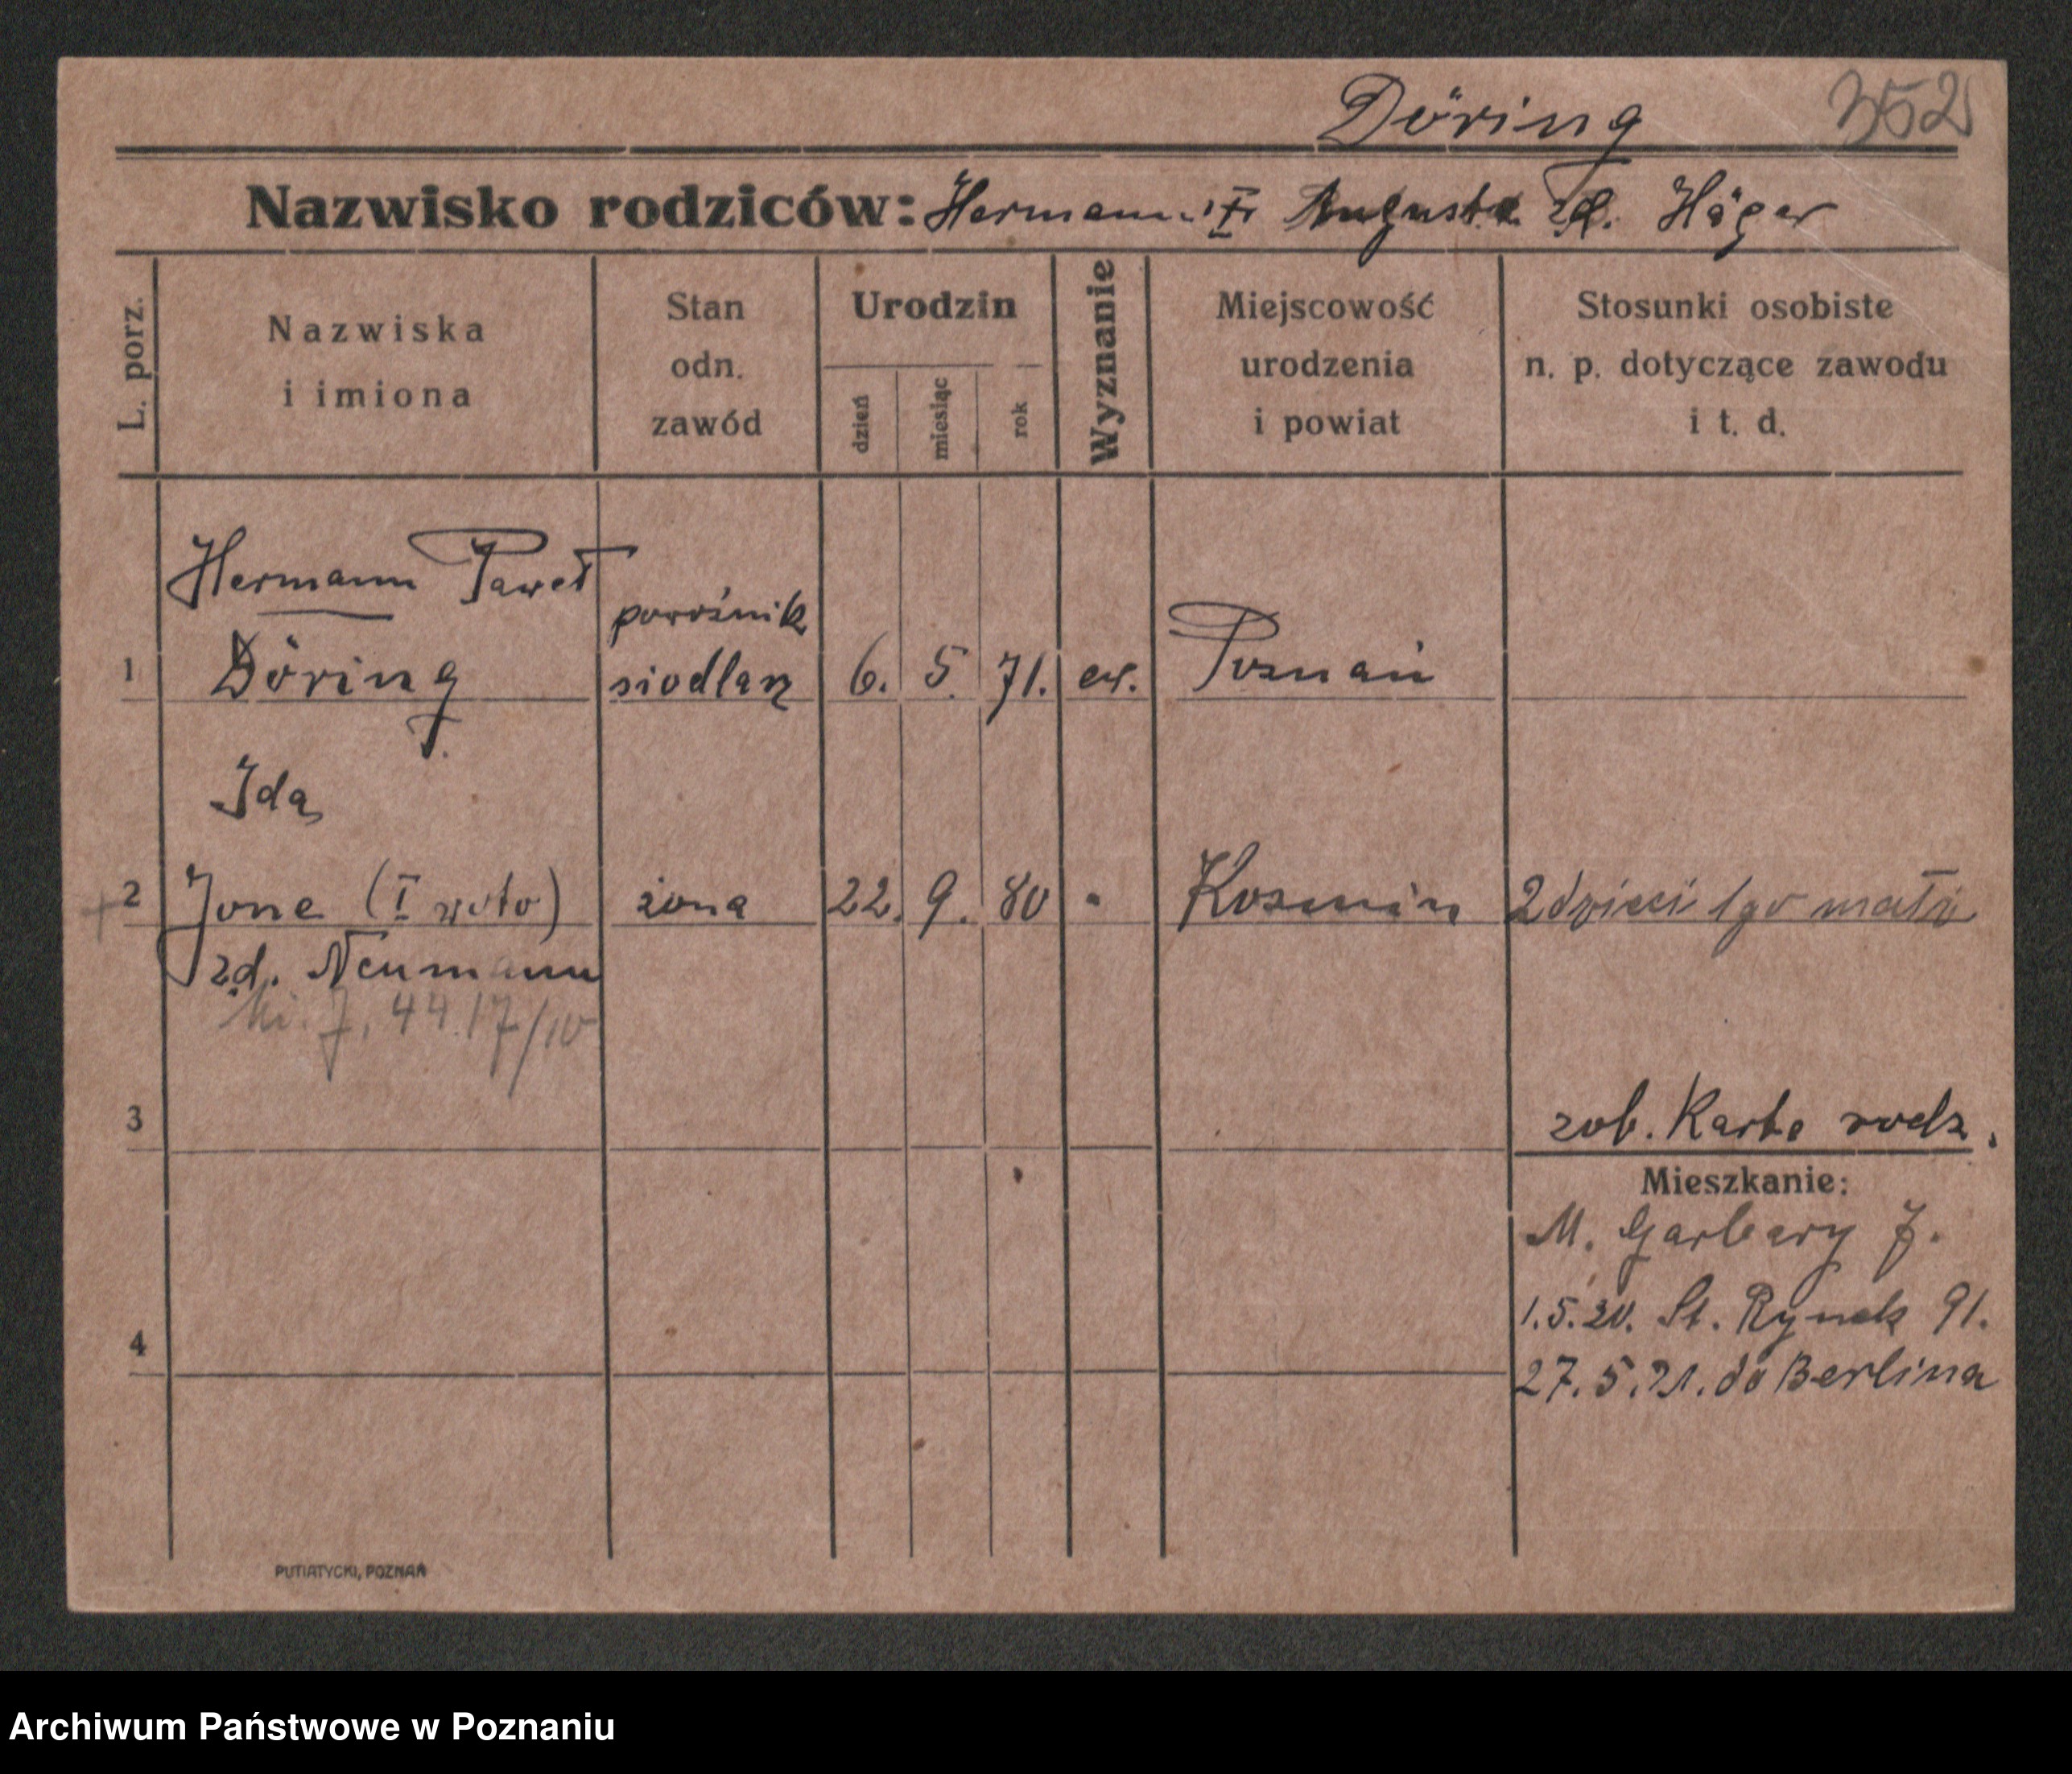 Döring 352
Nazwisko rodziców: Hermann i Augusta zd. Häger
L. porz.
Nazwiska
i imiona
Stan
odn.
zawód
Urodzin
dzień
miesiąc
rok
Wyznanie
Miejscowość
urodzenia
i powiat
Stosunki osobiste
n. p. dotyczące zawodu
i t. d.
Hermann Paweł
powoźnik
1 Döring siodlarz 6. 5. 71. ew. Poznań
Ida
2 Jone (I voto) żona 22. 9. 80 " Kozmin 2 dzieci 1go małż
zd. Neumann
7. 44.17/10
3 zob. Karte rodz.
Mieszkanie:
M. Garbary 7.
1.5.20. St. Rynek 91.
4
27.5.21. do Berlina
PUTIATYCKI, POZNAŃ
Archiwum Państwowe w Poznaniu